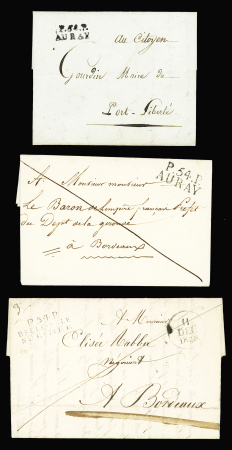 P.54.P.
AURAY
au Citoyen
Gourdin Maire de
Port-Liberté
P.54.P.
AURAY
A Monsieur monsieur
Le Baron de L'empire français Préfet
du Dépt de la gironde
à Bordeaux
P.54.P.
A Monsieur
Elisée
négociant
A Bordeaux
14
1828